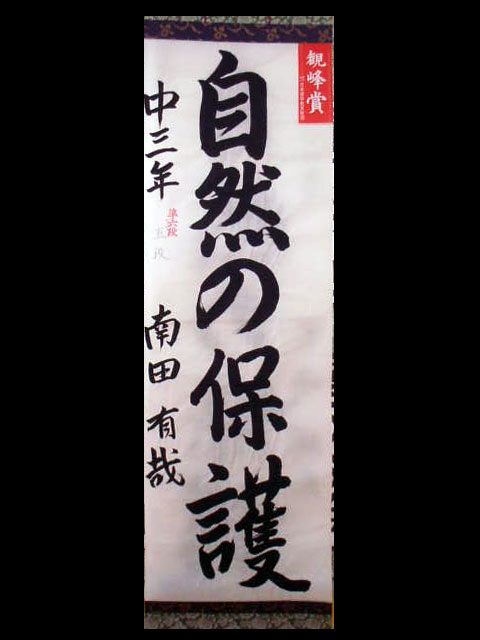 観峰賞
自然の保護
中三年
準六段
五段
南田有哉